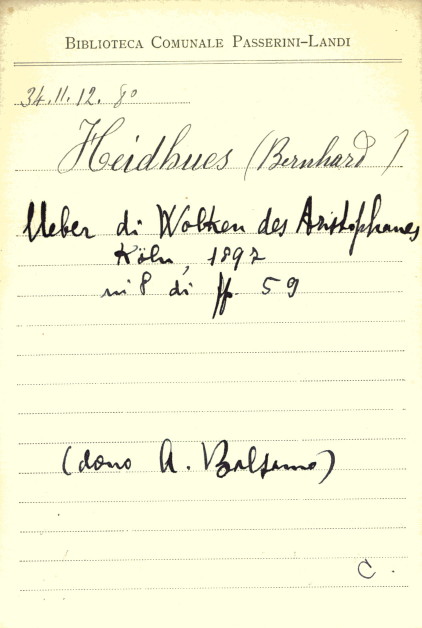 BIBLIOTECA COMUNALE PASSERINI-LANDI
34.11.12. 8°
Heidhues (Bernhard)
Ueber di Wolken des Aristophanes
Köln, 1897
in 8 di pp. 59
(dono A. Balsamo)
C.